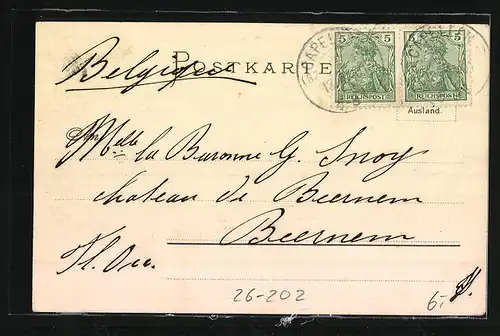 Belgique
POSTKARTE
5 5 5 5
REICHSPOST REICHSPOST
Ausland.
Mlle la Baronne G. Snoy
chateau de Beernem
Beernem
Fl. Occ.
26-202
6.-